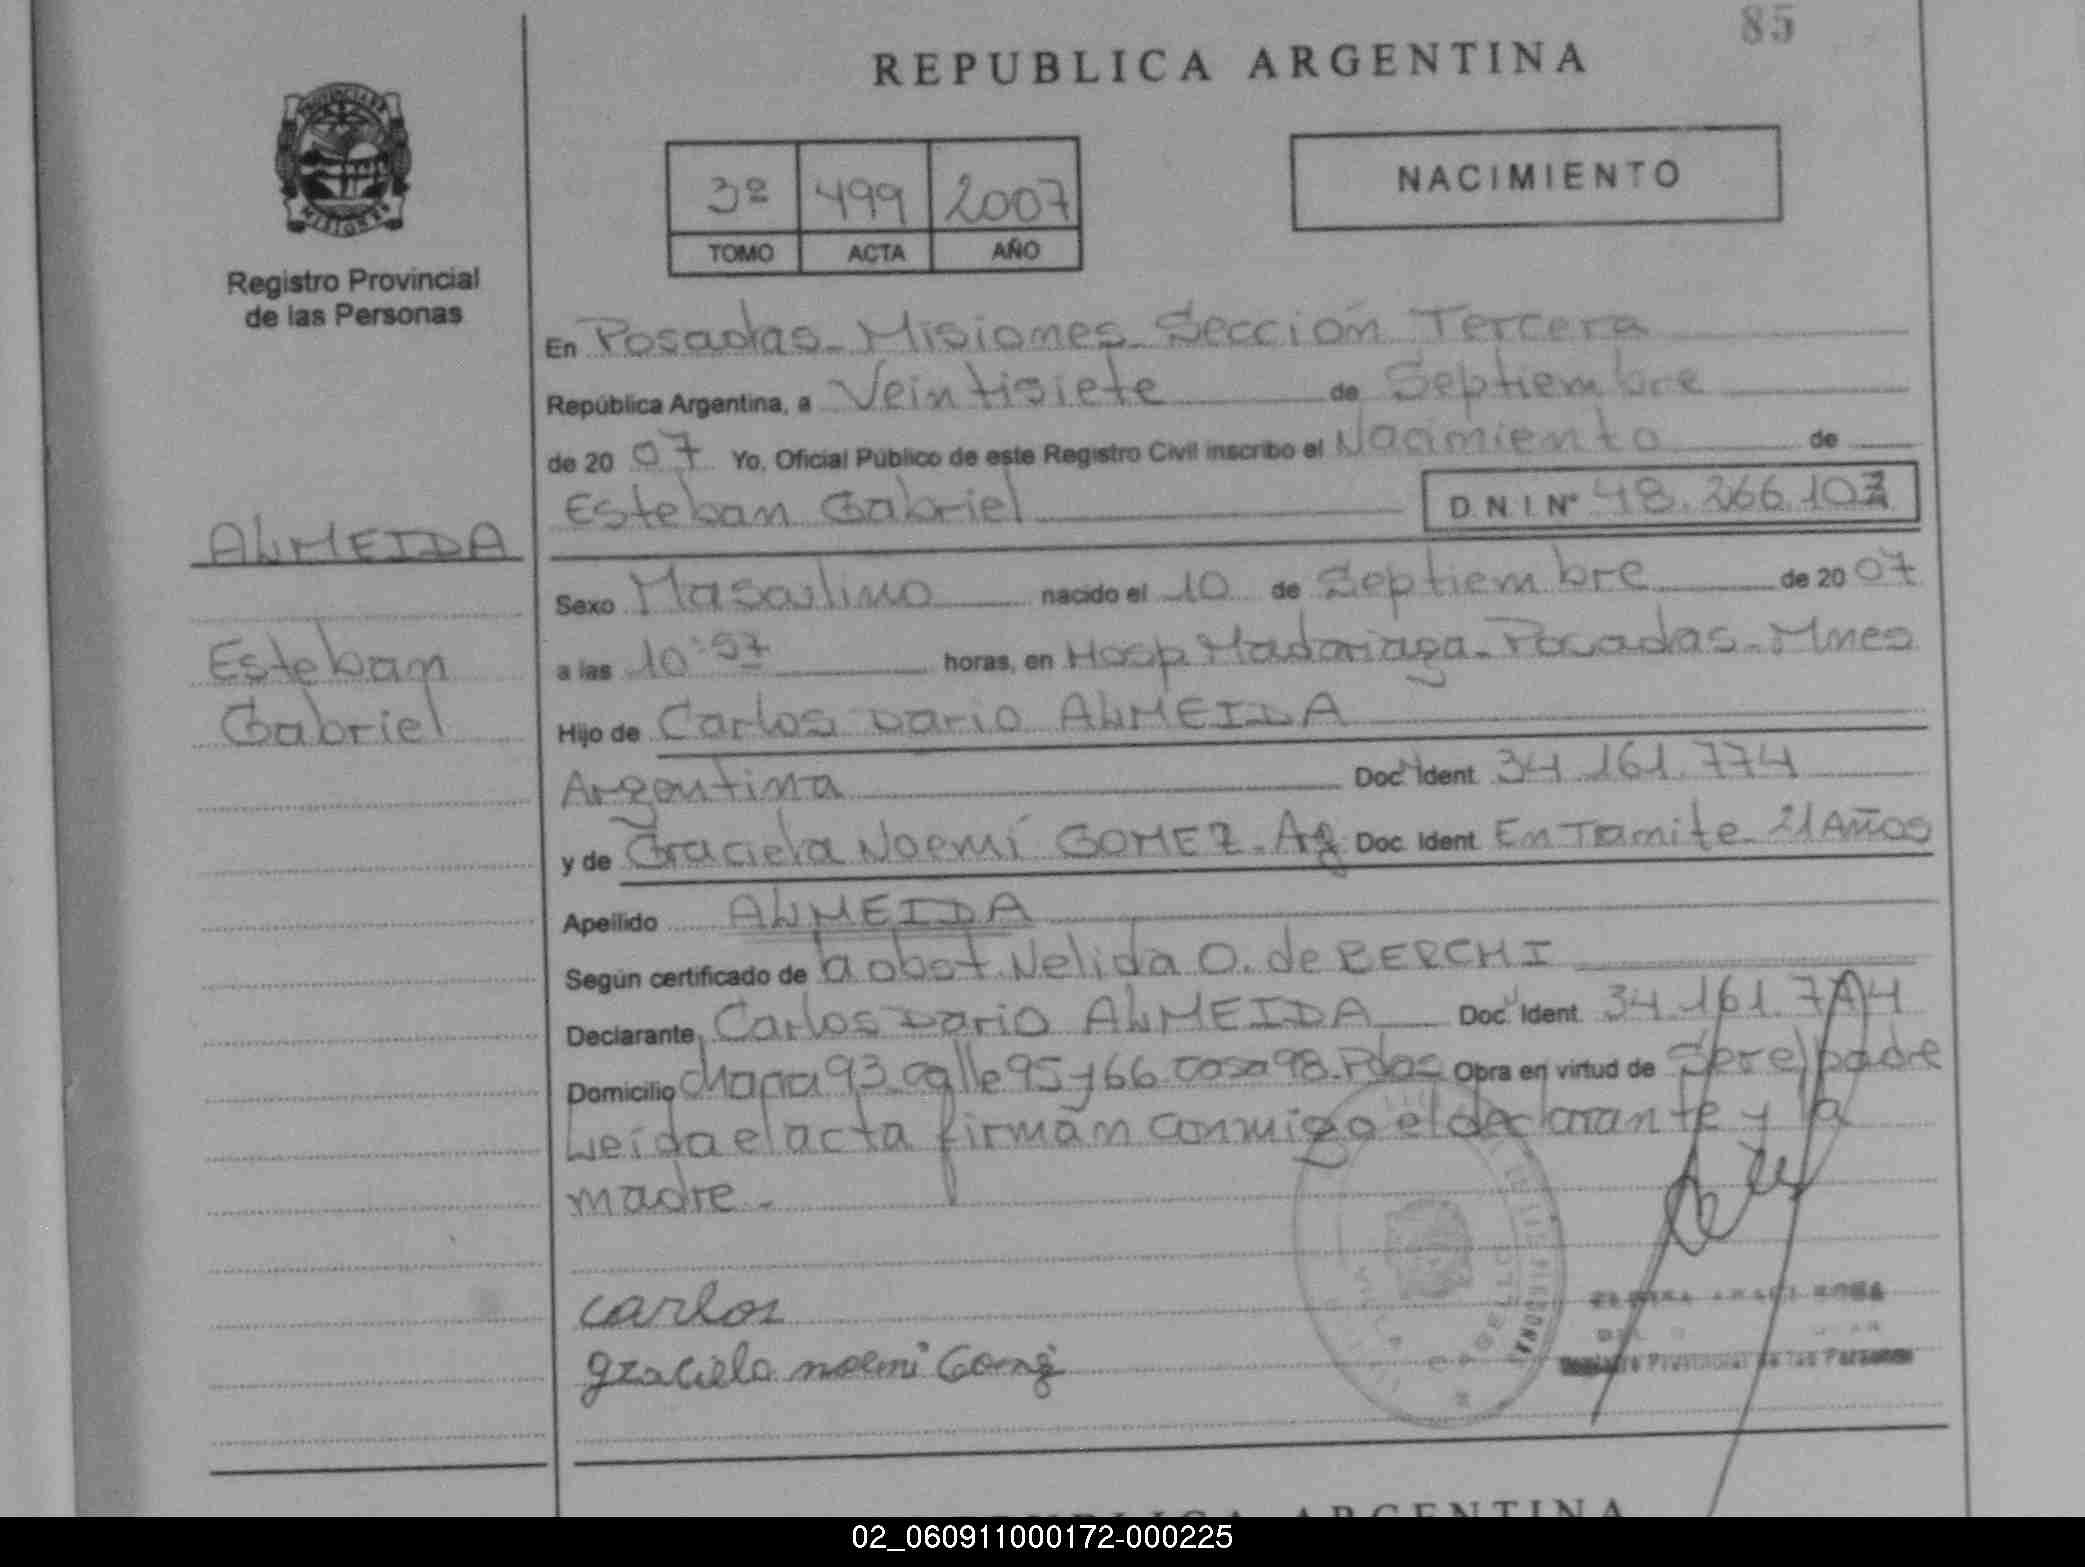 85
REPUBLICA ARGENTINA
PROVINCIA DE
MISIONES
Registro Provincial
de las Personas
3º 499 2007
TOMO ACTA AÑO
NACIMIENTO
En Posadas - Misiones - Sección Tercera
República Argentina, a Veintisiete de Septiembre
de 20 07 Yo, Oficial Público de este Registro Civil inscribo el Nacimiento de
Esteban Gabriel D.N.I. Nº 48.266.107
ALMEIDA
Esteban
Gabriel
Sexo Masculino nacido el 10 de Septiembre de 20 07
a las 10:57 horas, en Hosp. Madariaga - Posadas - Mnes
Hijo de Carlos Dario ALMEIDA
Argentina Doc. Ident. 34.161.774
y de Graciela Noemí GOMEZ - Ag Doc. Ident. En Tramite - 21 Años
Apellido ALMEIDA
Según certificado de la obst. Nelida O. de BERCHI
Declarante Carlos Dario ALMEIDA Doc. Ident. 34.161.774
Domicilio chacra 93 calle 95 y 66 casa 98 - Pdas Obra en virtud de Ser el padre
Leída el acta firmán conmigo el declarante y la
madre -
carlos
graciela noemi Gomez
Registro Provincial de las Personas
REPUBLICA ARGENTINA
02_060911000172-000225